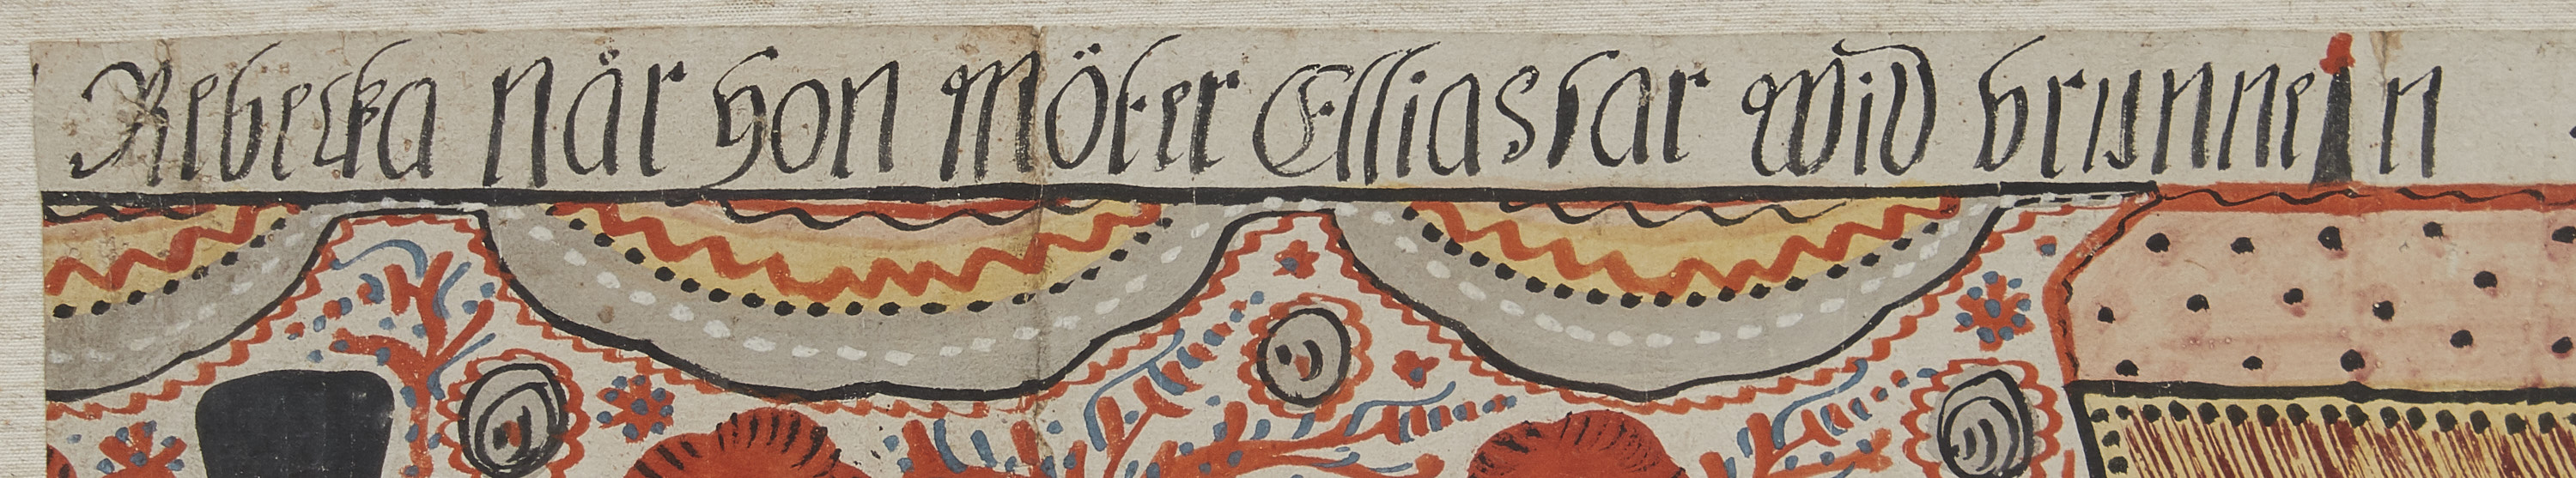 Rebecka når hon möter Elliasar wid brunnen